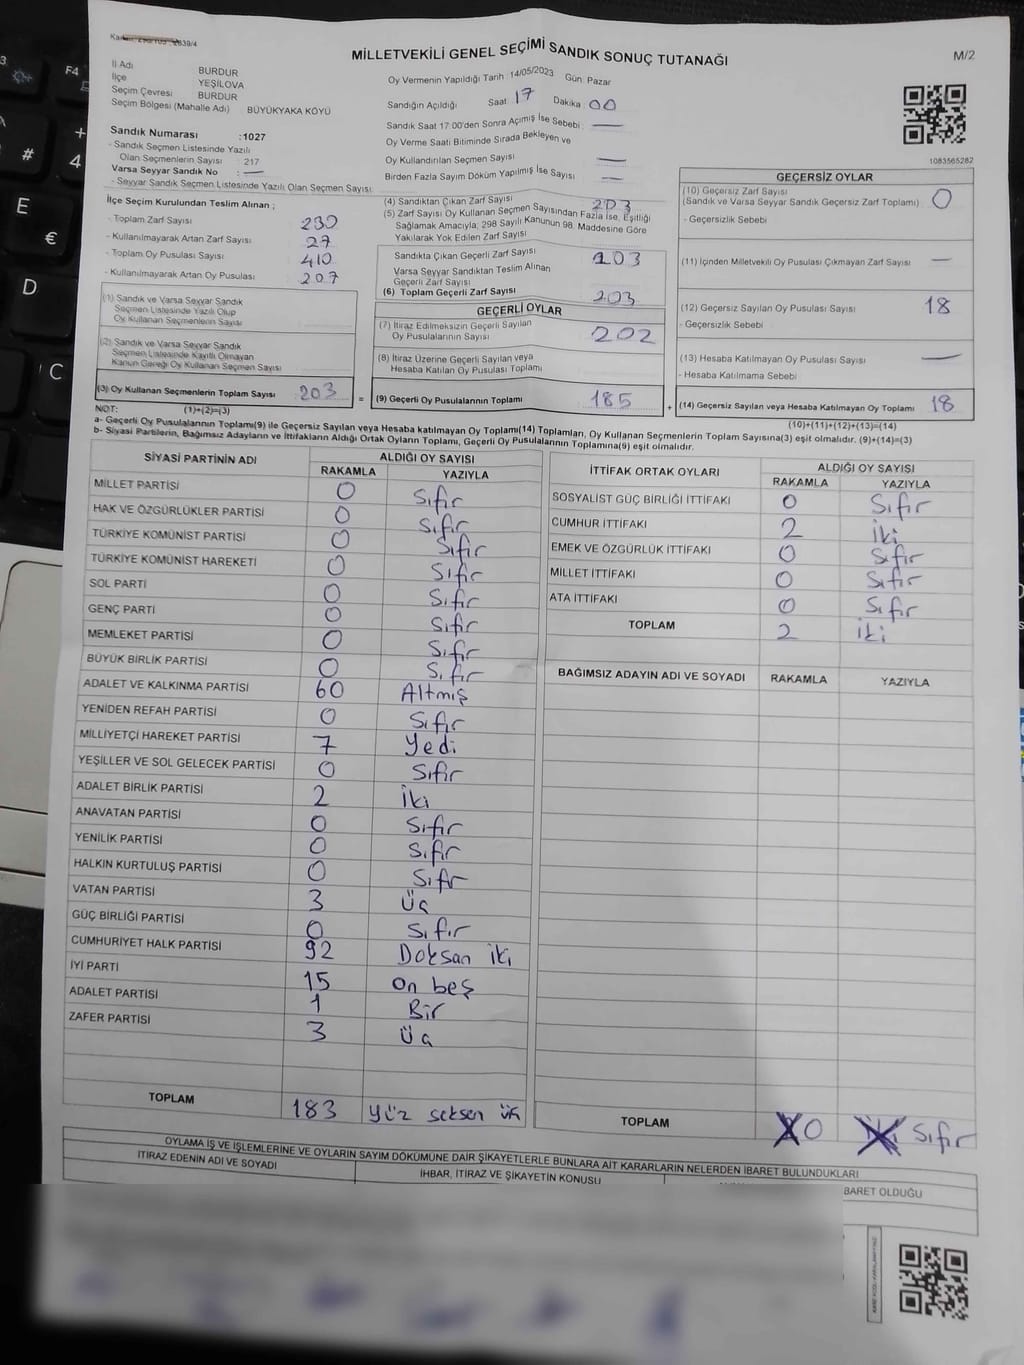 MİLLETVEKİLİ GENEL SEÇİMİ SANDIK SONUÇ TUTANAĞI
M/2
İl Adı BURDUR
İlçe YEŞİLOVA
Seçim Çevresi BURDUR
Seçim Bölgesi (Mahalle Adı) BÜYÜKYAKA KÖYÜ
Sandık Numarası :1027
- Sandık Seçmen Listesinde Yazılı
Olan Seçmenlerin Sayısı : 217
Varsa Seyyar Sandık No : —
- Seyyar Sandık Seçmen Listesinde Yazılı Olan Seçmen Sayısı:
Oy Vermenin Yapıldığı Tarih :14/05/2023 Gün: Pazar
Sandığın Açıldığı Saat 17 Dakika : 00
Sandık Saat 17:00'den Sonra Açımış İse Sebebi : —
Oy Verme Saati Bitiminde Sırada Bekleyen ve
Oy Kullandırılan Seçmen Sayısı —
Birden Fazla Sayım Döküm Yapılmış İse Sayısı —
1083565282
İlçe Seçim Kurulundan Teslim Alınan ;
- Toplam Zarf Sayısı 230
- Kullanılmayarak Artan Zarf Sayısı 27
- Toplam Oy Pusulası Sayısı 410
- Kullanılmayarak Artan Oy Pusulası 207
(1) Sandık ve Varsa Seyyar Sandık
Seçmen Listesinde Yazılı Olup
Oy Kullanan Seçmenlerin Sayısı
(2) Sandık ve Varsa Seyyar Sandık
Seçmen Listesinde Kayıtlı Olmayan
Kanun Gereği Oy Kullanan Seçmen Sayısı
(3) Oy Kullanan Seçmenlerin Toplam Sayısı 203 =
(4) Sandıktan Çıkan Zarf Sayısı 203
(5) Zarf Sayısı Oy Kullanan Seçmen Sayısından Fazla İse, Eşitliği
Sağlamak Amacıyla; 298 Sayılı Kanunun 98. Maddesine Göre
Yakılarak Yok Edilen Zarf Sayısı
Sandıkta Çıkan Geçerli Zarf Sayısı 203
Varsa Seyyar Sandıktan Teslim Alınan
Geçerli Zarf Sayısı
(6) Toplam Geçerli Zarf Sayısı 203
GEÇERLİ OYLAR
(7) İtiraz Edilmeksizin Geçerli Sayılan
Oy Pusulalarının Sayısı 202
(8) İtiraz Üzerine Geçerli Sayılan veya
Hesaba Katılan Oy Pusulası Toplamı
(9) Geçerli Oy Pusulalarının Toplamı 185 +
GEÇERSİZ OYLAR
(10) Geçersiz Zarf Sayısı
(Sandık ve Varsa Seyyar Sandık Geçersiz Zarf Toplamı) 0
- Geçersizlik Sebebi
(11) İçinden Milletvekili Oy Pusulası Çıkmayan Zarf Sayısı —
(12) Geçersiz Sayılan Oy Pusulası Sayısı 18
- Geçersizlik Sebebi
(13) Hesaba Katılmayan Oy Pusulası Sayısı —
- Hesaba Katılmama Sebebi
(14) Geçersiz Sayılan veya Hesaba Katılmayan Oy Toplamı 18
NOT: (1)+(2)=(3) (10)+(11)+(12)+(13)=(14)
a- Geçerli Oy Pusulalarının Toplamı(9) ile Geçersiz Sayılan veya Hesaba katılmayan Oy Toplamı(14) Toplamları, Oy Kullanan Seçmenlerin Toplam Sayısına(3) eşit olmalıdır. (9)+(14)=(3)
b- Siyasi Partilerin, Bağımsız Adayların ve İttifakların Aldığı Ortak Oyların Toplamı, Geçerli Oy Pusulalarının Toplamına(9) eşit olmalıdır.
SİYASİ PARTİNİN ADI ALDIĞI OY SAYISI
RAKAMLA YAZIYLA
MİLLET PARTİSİ 0 Sıfır
HAK VE ÖZGÜRLÜKLER PARTİSİ 0 Sıfır
TÜRKİYE KOMÜNİST PARTİSİ 0 Sıfır
TÜRKİYE KOMÜNİST HAREKETİ 0 Sıfır
SOL PARTİ 0 Sıfır
GENÇ PARTİ 0 Sıfır
MEMLEKET PARTİSİ 0 Sıfır
BÜYÜK BİRLİK PARTİSİ 0 Sıfır
ADALET VE KALKINMA PARTİSİ 60 Altmış
YENİDEN REFAH PARTİSİ 0 Sıfır
MİLLİYETÇİ HAREKET PARTİSİ 7 Yedi
YEŞİLLER VE SOL GELECEK PARTİSİ 0 Sıfır
ADALET BİRLİK PARTİSİ 2 İki
ANAVATAN PARTİSİ 0 Sıfır
YENİLİK PARTİSİ 0 Sıfır
HALKIN KURTULUŞ PARTİSİ 0 Sıfır
VATAN PARTİSİ 3 Üç
GÜÇ BİRLİĞİ PARTİSİ 0 Sıfır
CUMHURİYET HALK PARTİSİ 92 Doksan iki
İYİ PARTİ 15 On beş
ADALET PARTİSİ 1 Bir
ZAFER PARTİSİ 3 Üç
TOPLAM 183 yüz seksen üç
İTTİFAK ORTAK OYLARI ALDIĞI OY SAYISI
RAKAMLA YAZIYLA
SOSYALİST GÜÇ BİRLİĞİ İTTİFAKI 0 Sıfır
CUMHUR İTTİFAKI 2 İki
EMEK VE ÖZGÜRLÜK İTTİFAKI 0 Sıfır
MİLLET İTTİFAKI 0 Sıfır
ATA İTTİFAKI 0 Sıfır
TOPLAM 2 iki
BAĞIMSIZ ADAYIN ADI VE SOYADI RAKAMLA YAZIYLA
TOPLAM 0 Sıfır
OYLAMA İŞ VE İŞLEMLERİNE VE OYLARIN SAYIM DÖKÜMÜNE DAİR ŞİKAYETLERLE BUNLARA AİT KARARLARIN NELERDEN İBARET BULUNDUKLARI
İTİRAZ EDENİN ADI VE SOYADI İHBAR, İTİRAZ VE ŞİKAYETİN KONUSU BARET OLDUĞU